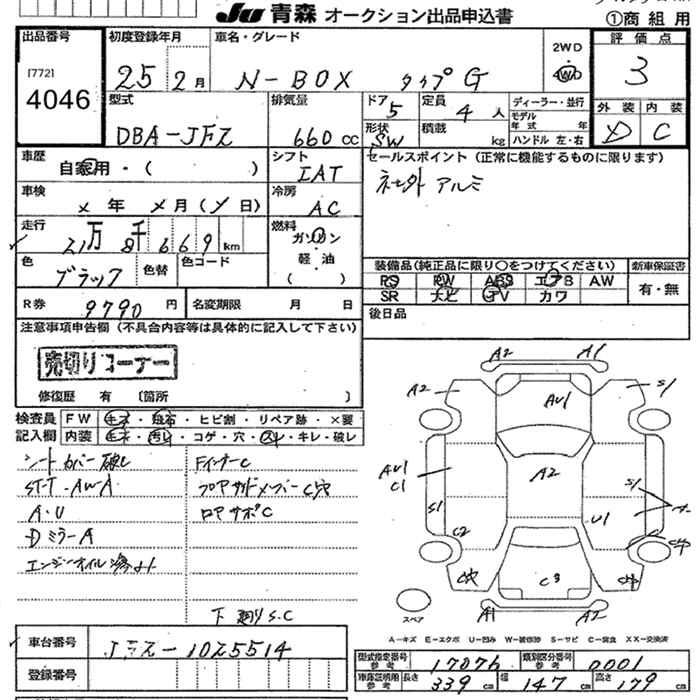 JU 青森 オークション出品申込書
①商 組 用
出品番号
[772]
4046
初度登録年月
25 2月
車名・グレード
N-BOX タイプG
2WD
4WD
評価点
3
外装 内装
D C
型式
DBA-JF2
排気量
660cc
ドア 5
形状 SW
定員 4人
積載 kg
ディーラー・並行
モデル年式 年
ハンドル 左・右
車歴
自家用・( )
シフト
IAT
セールスポイント(正常に機能するものに限ります)
社外 アルミ
車検
× 年 × 月 (× 日)
冷房
AC
走行
21万 8千 6 6 9 km
燃料
ガソリン
軽・油
( )
色
ブラック
色替
色コード
装備品(純正品に限り○をつけてください)
新車保証書
PS PW ABS エアB AW
SR ナビ TV カワ
有・無
R券 9790 円
名変期限 月 日
後日品
注意事項申告欄(不具合内容等は具体的に記入して下さい)
売切りコーナー
修復歴 有 〔箇所 〕
検査員 FW キズ・飛石・ヒビ割・リペア跡・×要
記入欄 内装 キズ・汚れ・コゲ・穴・スレ・キレ・破レ
シートカバー破レ
ST-T・AWA
A・U
DミラーA
エンジンオイル滲ミ
FインナーC
フロアサイドメンバーC穴
ロアサポC
下廻りS.C
A2 A1
A2 AU1 S1
AU1
C1
A2
S1 S1
C2 U1
C穴 C3 C穴 C穴
A1 A2
スペア
A-キズ E-エクボ U-凹み W-板修跡 S-サビ C-腐食 XX-交換済
車台番号 JF2-1025514
登録番号
型式指定番号 参考 17076
類別区分番号 参考 0001
車庫証明用 参考 長さ 339cm 幅 147cm 高さ 179cm